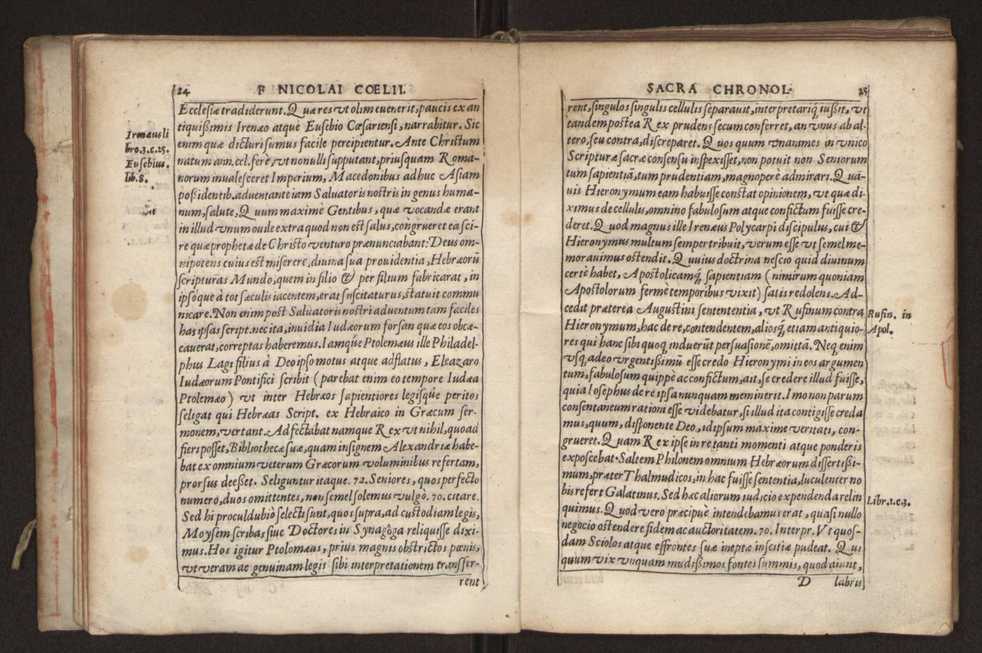 24 F NICOLAI COELII.
Ecclesiæ tradiderunt. Quæ res vt olim euenerit, paucis ex an
tiquißimis Irenæo atque Eusebio Cæsariensi, narrabitur. Sic
enim quæ dicturi sumus facile percipientur. Ante Christum
natum ann. ccl. ferè, vt nonulli supputant, priusquam Roma-
norum inualesceret Imperium, Macedonibus adhuc Asiam
poßidentib. aduentante iam Saluatoris nostri in genus huma-
num, salute, Quum maximè Gentibus, quæ vocandæ erant
in illud vnum ouile extra quod non est salus, congrueret ea sci-
re quæ prophetæ de Christo venturo prænunciabant: Deus om-
nipotens cuius est miserere, diuina sua prouidentia, Hebræorũ
scripturas Mundo, quem in filio & per filium fabricarat, in
ipsoque à tot sæculis iacentem, erat suscitaturus, statuit commu
nicare. Non enim post Saluatoris nostri aduentum tam faciles
has ipsas script. nec ita, inuidia Iudæorum forsan quæ eos obcæ-
cauerat, correptas haberemus. Iamque Ptolemæus ille Philadel-
phus Lagi filius à Deo ipso motus atque adflatus, Eleazaro
Iudæorum Pontifici scribit (parebat enim eo tempore Iudæa
Ptolemæo) vt inter Hebræos sapientiores legisque peritos
seligat qui Hebræas Script. ex Hebraico in Græcum ser-
monem, vertant. Adfectabat namque Rex vt nihil, quoad
fieri posset, Bibliothecæ suæ, quam insignem Alexandriæ habe-
bat ex omnium veterum Græcorum voluminibus refertam,
prorsus deesset. Seliguntur itaque. 72. Seniores, quos perfecto
numero, duos omittentes, non semel solemus vulgò. 70. citare.
Sed hi proculdubiò selecti sunt, quos supra, ad custodiam legis,
Moysem scribas siue Doctores in Synagoga reliquisse dixi-
mus. Hos igitur Ptolomæus, prius magnis obstrictos pœnis,
vt veram ac genuinam legis sibi interpretationem transfer-
rent
Irenæus li
bro. 3. c. 25.
Eusebius.
lib. 8.
SACRA CHRONOL. 25
rent, singulos singulis cellulis separauit, interpretariq; iußit, vt
tandem postea Rex prudens secum conferret, an vnus ab al-
tero, seu contra, discreparet. Quos quum vnanimes in vnico
Scripturæ sacræ consensu inspexisset, non potuit non Seniorum
tum sapientia, tum prudentiam, magnoperè admirari. Quã-
uis Hieronymum eam habuisse constat opinionem, vt quæ di-
ximus de cellulis, omnino fabulosum atque confictum fuisse cre-
deret. Quod magnus ille Irenæus Polycarpi discipulus, cui &
Hieronymus multum semper tribuit, verum esse vt semel me-
morauimus ostendit. Quuius doctrina nescio quid diuinum
certè habet, Apostolicamq; sapientiam (nimirum quoniam
Apostolorum fermè temporibus vixit) satis redolens. Ad-
cedit præterea Augustini sentententia, vt Rufinum contra
Hieronymum, hac de re, contendentem, aliosq; etiam antiquio-
res qui hanc sibi quoq; induerũt persuasionẽ, omittã. Neq; enim
vsq; adeo vrgentißimũ esse credo Hieronymi in eos argumen
tum, fabulosum quippè ac confictum, ait, se credere illud fuisse,
quia Iosephus de re ipsa nunquam meminerit. Imo non parum
consentaneum rationi esse videbatur, si illud ita contigisse creda
mus, quum, disponente Deo, id ipsum maximè veritati, con-
grueret. Quam Rex ipse in re tanti momenti atque ponderis
exposcebat. Saltem Philonem omnium Hebræorum dissertißi-
mum, præter Thalmudicos, in hac fuisse sententia, luculenter no
bis refert Galatinus. Sed hæc aliorum iudicio expendenda relin
quimus. Quod verò præcipuè intendebamus erat, quasi nullo
negocio ostendere fidem ac auctoritatem. 70. Interpr. Vt quos-
dam Sciolos atque effrontes suæ ineptæ inscitiæ pudeat. Qui
quum vix vnquam mudißimos fontes summis, quod aiunt,
D labris
Rufin. in
Apol.
Libr. 1. c. 3.